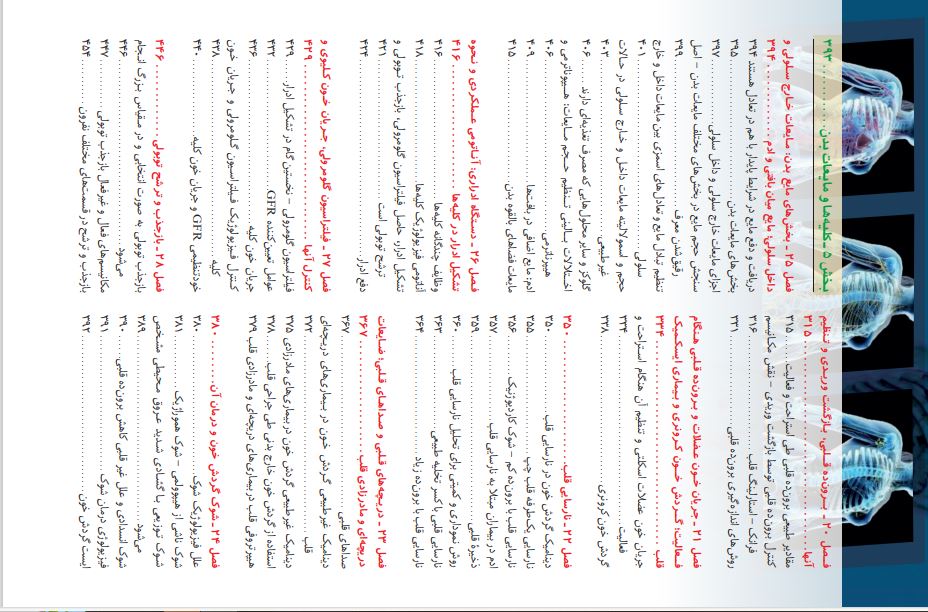 فصل ۲۰ ـ برون‌ده قلبی، بازگشت وریدی و تنظیم
آنها ........ ۳۱۵
مقادیر طبیعی برون‌ده قلبی طی استراحت و فعالیت ...... ۳۱۵
کنترل برون‌ده قلبی توسط بازگشت وریدی – نقش مکانیسم
فرانک – استارلینگ قلب ........ ۳۱۶
روش‌های اندازه‌گیری برون‌ده قلبی ........ ۳۳۱
فصل ۲۱ ـ جریان خون عضلات و برون‌ده قلبی هنگام
فعالیت؛ گردش خون کرونری و بیماری ایسکمیک
قلب ........ ۳۳۴
جریان خون عضلات اسکلتی و تنظیم آن هنگام استراحت و
فعالیت ........ ۳۳۴
گردش خون کرونری ........ ۳۳۸
فصل ۲۲ ـ نارسایی قلب ........ ۳۵۰
دینامیک گردش خون در نارسایی قلب ........ ۳۵۰
نارسایی یک‌طرفه قلب چپ ........ ۳۵۵
نارسایی قلب با برون‌ده کم – شوک کاردیوژنیک ........ ۳۵۶
ادم در بیماران مبتلا به نارسایی قلب ........ ۳۵۷
ذخیره قلبی ........ ۳۵۹
روش نموداری و کمیتی برای تحلیل نارسایی قلب ........ ۳۶۰
نارسایی قلبی با کسر تخلیه طبیعی ........ ۳۶۳
نارسایی قلب با برون‌ده زیاد ........ ۳۶۴
فصل ۲۳ ـ دریچه‌های قلبی و صداهای قلبی؛ ضایعات
دریچه‌ای و مادرزادی قلب ........ ۳۶۷
صداهای قلبی ........ ۳۶۷
دینامیک غیرطبیعی گردش خون در بیماری‌های دریچه‌ای
قلب ........ ۳۷۲
دینامیک غیرطبیعی گردش خون در بیماری‌های مادرزادی ۳۷۵
استفاده از گردش خون خارج بدنی طی جراحی قلب ........ ۳۷۸
هیپرتروفی قلب در بیماری‌های دریچه‌ای و مادرزادی قلب ۳۷۹
فصل ۲۴ ـ شوک گردش خون و درمان آن ........ ۳۸۰
علل فیزیولوژیک شوک ........ ۳۸۰
شوک ناشی از هیپوولمی – شوک هموراژیک ........ ۳۸۱
شوک توزیعی با گشادی شدید عروق محیطی مشخص
می‌شود ........ ۳۸۹
شوک انسدادی و علل غیر قلبی کاهش برون‌ده قلبی ........ ۳۹۰
فیزیولوژی درمان شوک ........ ۳۹۱
ایست گردش خون ........ ۳۹۲
بخش ۵ ـ کلیه‌ها و مایعات بدن ........ ۳۹۳
فصل ۲۵ ـ بخش‌های مایع بدن: مایعات خارج سلولی و
داخل سلولی؛ مایع میان بافتی و ادم ........ ۳۹۴
دریافت و دفع مایع در شرایط پایدار با هم در تعادل هستند ۳۹۴
بخش‌های مایعات بدن ........ ۳۹۵
اجزای مایعات خارج سلولی و داخل سلولی ........ ۳۹۷
سنجش حجم مایع در بخش‌های مختلف مایعات بدن – اصل
رقیق‌شدن معرف ........ ۳۹۹
تنظیم تبادل مایع و تعادل‌های اسمزی بین مایعات داخل و خارج
سلولی ........ ۴۰۱
حجم و اسمولالیته مایعات داخل و خارج سلولی در حالات
غیرطبیعی ........ ۴۰۳
گلوکز و سایر محلول‌هایی که مصرف تغذیه‌ای دارند ........ ۴۰۶
اختلالات بالینی تنظیم حجم مایعات: هیپوناترمی و
هیپرناترمی ........ ۴۰۶
ادم: مایع اضافی در بافت‌ها ........ ۴۰۹
مایعات فضاهای بالقوه بدن ........ ۴۱۵
فصل ۲۶ ـ دستگاه ادراری: آناتومی عملکردی و نحوه
تشکیل ادرار در کلیه‌ها ........ ۴۱۶
وظایف چندگانه کلیه‌ها ........ ۴۱۶
آناتومی فیزیولوژیک کلیه‌ها ........ ۴۱۸
تشکیل ادرار، حاصل فیلتراسیون گلومرولی، بازجذب توبولی و
ترشح توبولی است ........ ۴۲۱
دفع ادرار ........ ۴۲۴
فصل ۲۷ ـ فیلتراسیون گلومرولی، جریان خون کلیوی و
کنترل آنها ........ ۴۲۹
فیلتراسیون گلومرولی – نخستین گام در تشکیل ادرار ........ ۴۲۹
عوامل تعیین‌کننده GFR ........ ۴۳۲
جریان خون کلیه ........ ۴۳۶
کنترل فیزیولوژیک فیلتراسیون گلومرولی و جریان خون
کلیه ........ ۴۳۸
خودتنظیمی GFR و جریان خون کلیه ........ ۴۴۰
فصل ۲۸ ـ بازجذب و ترشح توبولی ........ ۴۴۶
بازجذب توبولی به صورت انتخابی و در مقیاس بزرگ انجام
می‌شود ........ ۴۴۶
مکانیسم‌های فعال و غیرفعال بازجذب توبولی ........ ۴۴۷
بازجذب و ترشح در قسمت‌های مختلف نفرون ........ ۴۵۴